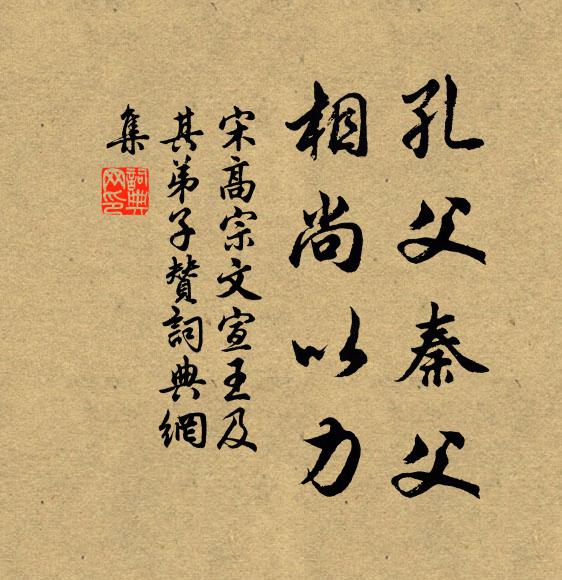 孔父秦父
相尚以力
宋高宗文宣王及
其弟子贊詞典網
集
詞典
网印